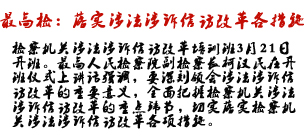 最高检：落实涉法涉诉信访改革各措施
检察机关涉法涉诉信访改革培训班3月21日
开班。最高人民检察院副检察长柯汉民在开
班仪式上讲话强调，要深刻领会涉法涉诉信
访改革的重要意义，全面把握检察机关涉法
涉诉信访改革的重点环节，切实落实检察机
关涉法涉诉信访改革各项措施。